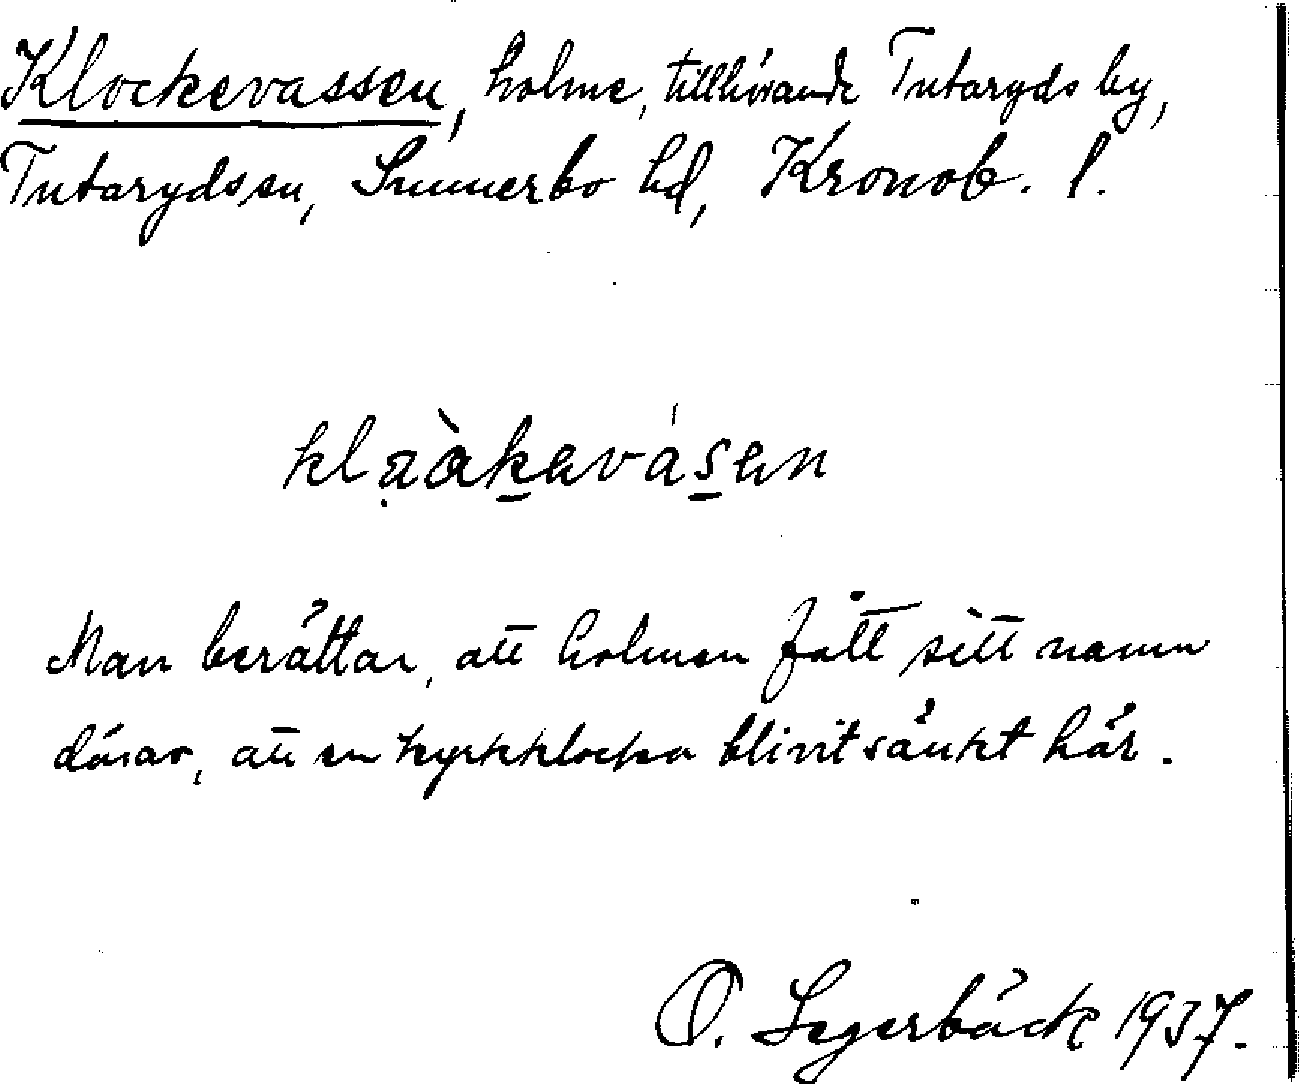 Klockevassen, holme, tillhörande Tutaryds by,
Tutaryds sn, Sunnerbo hd, Kronob. l.
klaàkavásan
Man berättar, att holmen fått sitt namn
därav, att en kyrkklocka blivit sänkt här.
O. Segerbäck 1937.